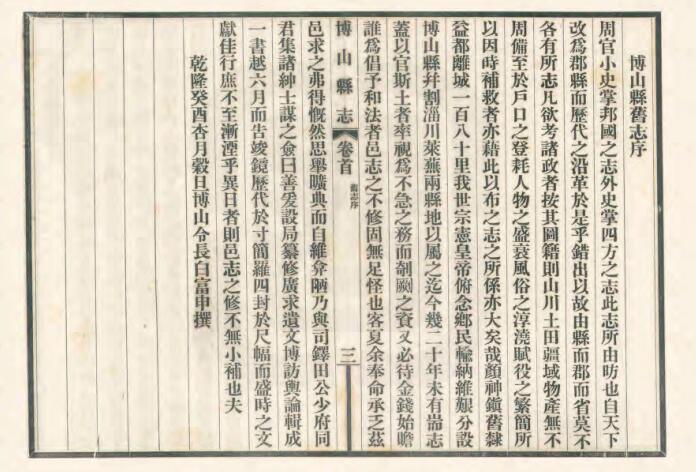 博山縣舊志序
周官小史掌邦國之志外史掌四方之志此志所由昉也自天下
改爲郡縣而歷代之沿革於是乎錯出以故由縣而郡而省莫不
各有所志凡欲考諸政者按其圖籍則山川土田疆域物產無不
周備至於戶口之登耗人物之盛衰風俗之淳澆賦役之繁簡所
以因時補救者亦藉此以布之志之所係亦大矣哉顏神鎮舊隸
益都離城一百八十里我世宗憲皇帝俯念鄉民輸納維艱分設
博山縣幷割淄川萊蕪兩縣地以屬之迄今幾二十年未有耑志
蓋以官斯土者率視爲不急之務而剞劂之資又必待金錢始贍
誰爲倡予和法者邑志之不修固無足怪也客夏余奉命承乏茲
博山縣志
卷首
舊志序
三
邑求之弗得慨然思舉曠典而自維弇陋乃與司鐸田公少府同
君集諸紳士謀之僉曰善爰設局纂修廣求遺文博訪輿論輯成
一書越六月而告竣鏡歷代於寸簡羅四封於尺幅而盛時之文
獻佳行庶不至漸湮乎異日者則邑志之修不無小補也夫
乾隆癸酉杏月穀旦博山令長白富申撰